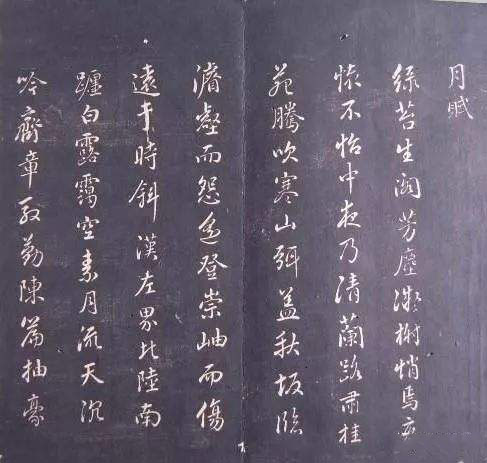 月賦
綠苔生閣芳塵凝榭悄焉疚
懷不怡中夜乃清蘭路肅桂
苑騰吹寒山弭蓋秋坂臨
濬壑而怨遙登崇岫而傷
遠于時斜漢左界北陸南
躔白露靄空素月流天沉
吟齊章殷勤陳篇抽豪